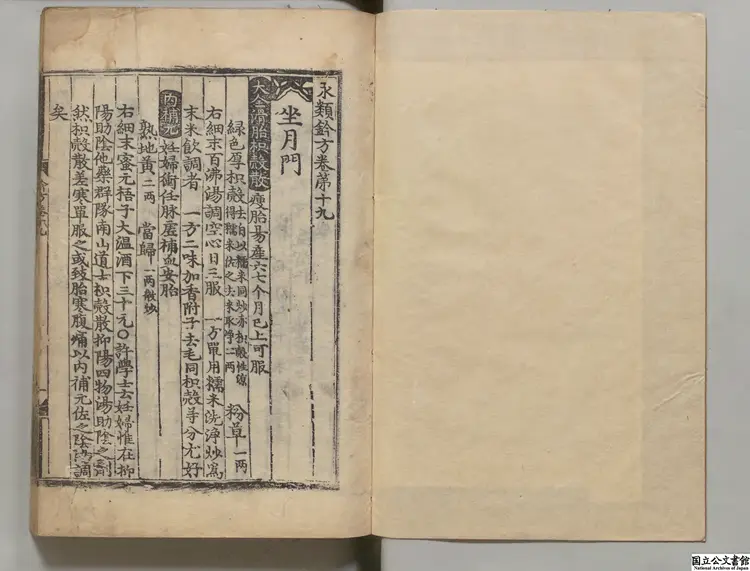 永類鈐方卷第十九
坐月門
大全滑胎枳殼散 瘦胎易產六七个月已上可服
綠色厚枳殼 粉草一两
右細末百沸湯調空心日三服 一方單用糯米洗淨炒爲
末米飲調者 一方二味加香附子去毛同枳殼等分尤好
內補元 妊婦衝任脉虛補血安胎
熟地黃二两 當歸一两微炒
右細末蜜元梧子大温酒下三十元〇許學士云妊婦惟在抑
陽助陰他藥群隊南山道士枳殼散抑陽四物湯助陰之劑
然枳殼散差寒單服之或致胎寒腹痛以內補元佐之陰陽調
矣
国立公文書館
National Archives of Japan